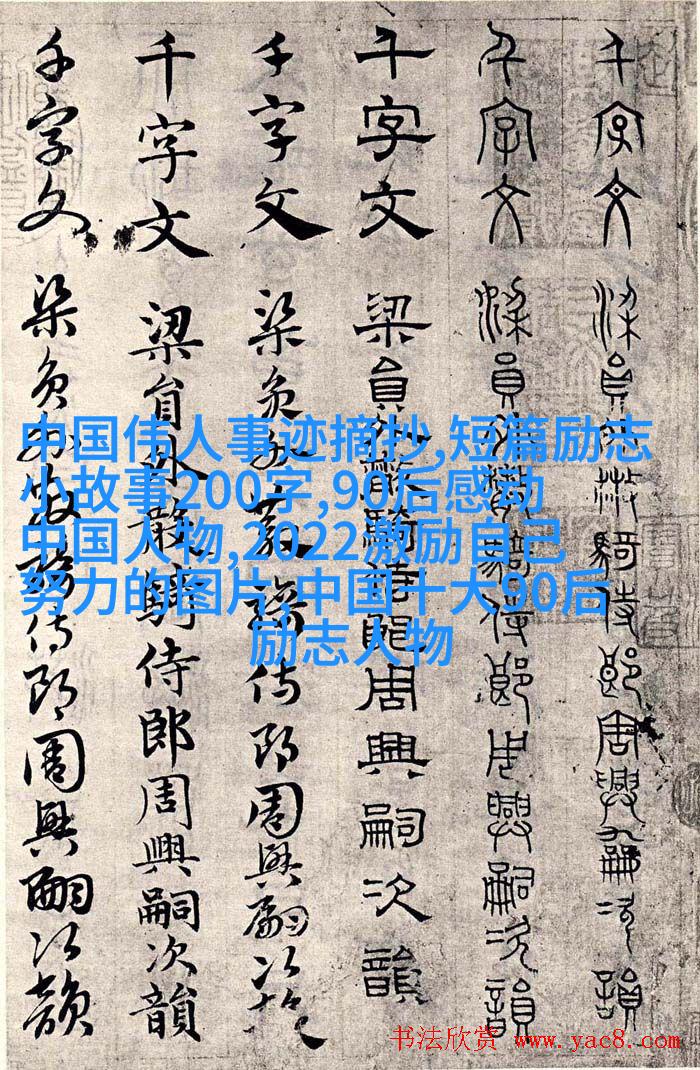 千字文 梁員外散騎侍郎周興嗣次韻
千字文 梁員外散騎侍郎周興嗣次韻
千字文 梁員外散騎侍郎周興嗣次韻
千字文 梁員外散騎侍郎周興嗣次韻
千字文 梁員外散騎侍郎周興嗣次韻
千字文 梁員外散騎侍郎周興嗣次韻
中国伟人事迹摘抄,短篇励志
小故事200字,90后感动
中国人物,2022激励自己
努力的图片,中国十大90后
励志人物
书法欣赏 www.yac8.com